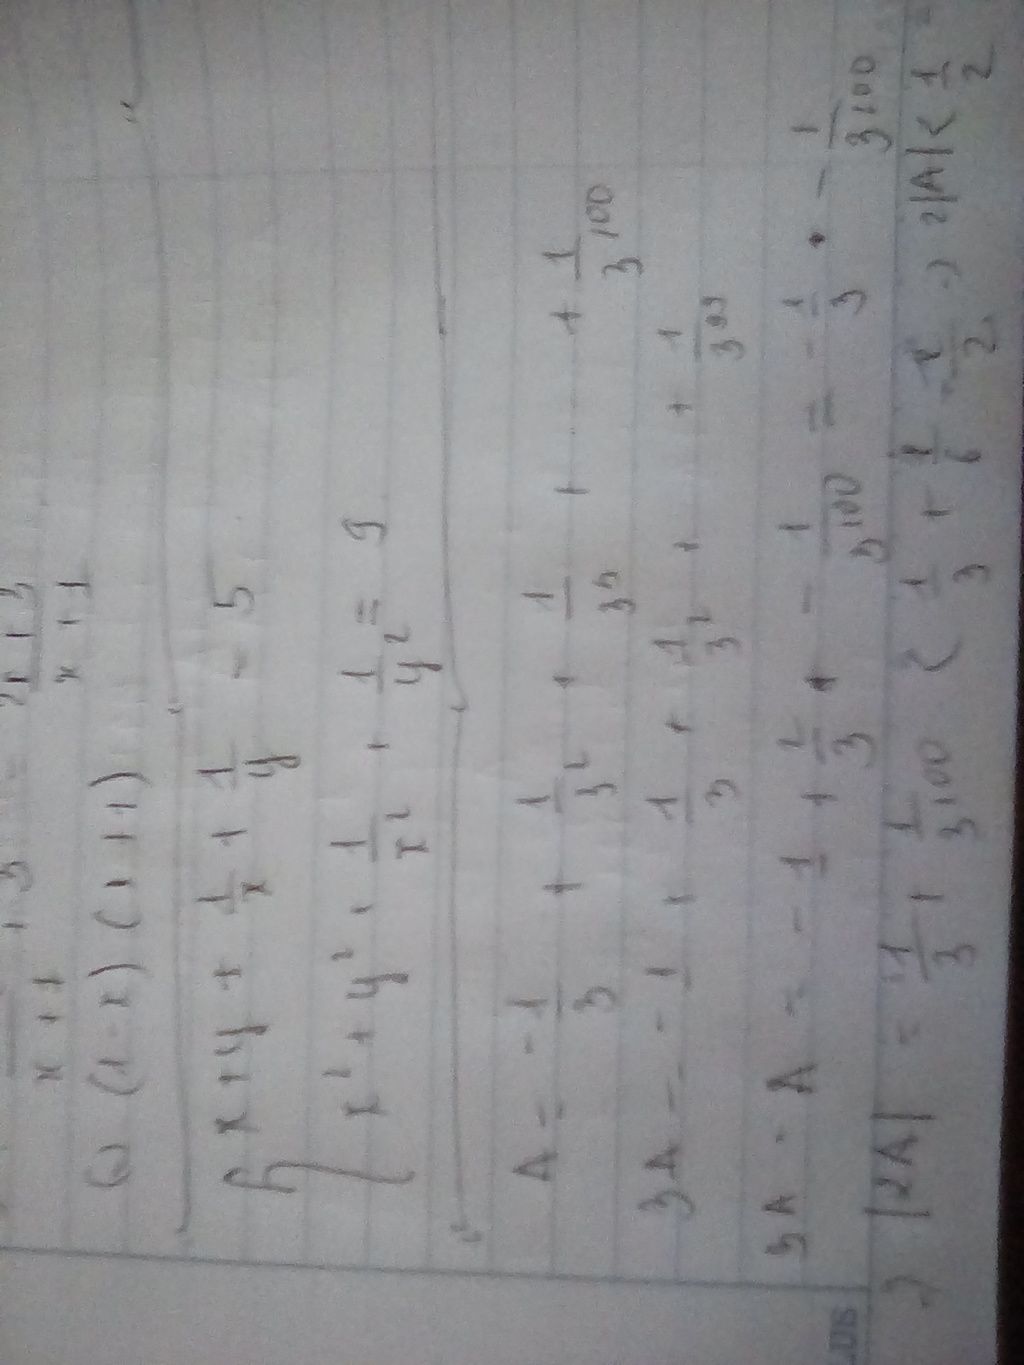 x + 1
x + 1
(1 - x) (1 + 1)
x + y + 1/x + 1/y = 5
x² + y² + 1/x² + 1/y² = 9
A = - 1/3 + 1/3² + 1/3³ + + + 1/3¹⁰⁰
3A = - 1 + 1/3 + 1/3² + + 1/3⁹⁹
3A - A = - 1 + 1/3 + - 1/3¹⁰⁰ = - 1/3 - 1/3¹⁰⁰
|2A| = 1/3 + 1/3¹⁰⁰ < 1/3 + 1/6 = 1/2 => 2|A| < 1/2